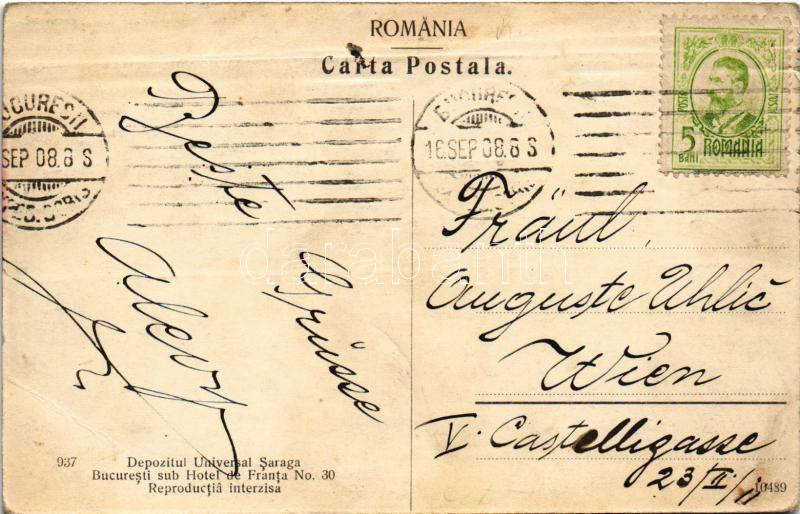 ROMÂNIA
Carta Postala.
BUCURESCI
16 SEP 08. 8 S
BUCURESCI
SEP 08. 8 S
POSTA
5
BANI
ROMANIA
Beste
Grüsse
Fräul.
Auguste Uhlič
Wien
V. Castelligasse
23/II/11
937
Depozitul Universal Șaraga
București sub Hotel de Franța No. 30
Reproducția interzisa
10489
darabanth